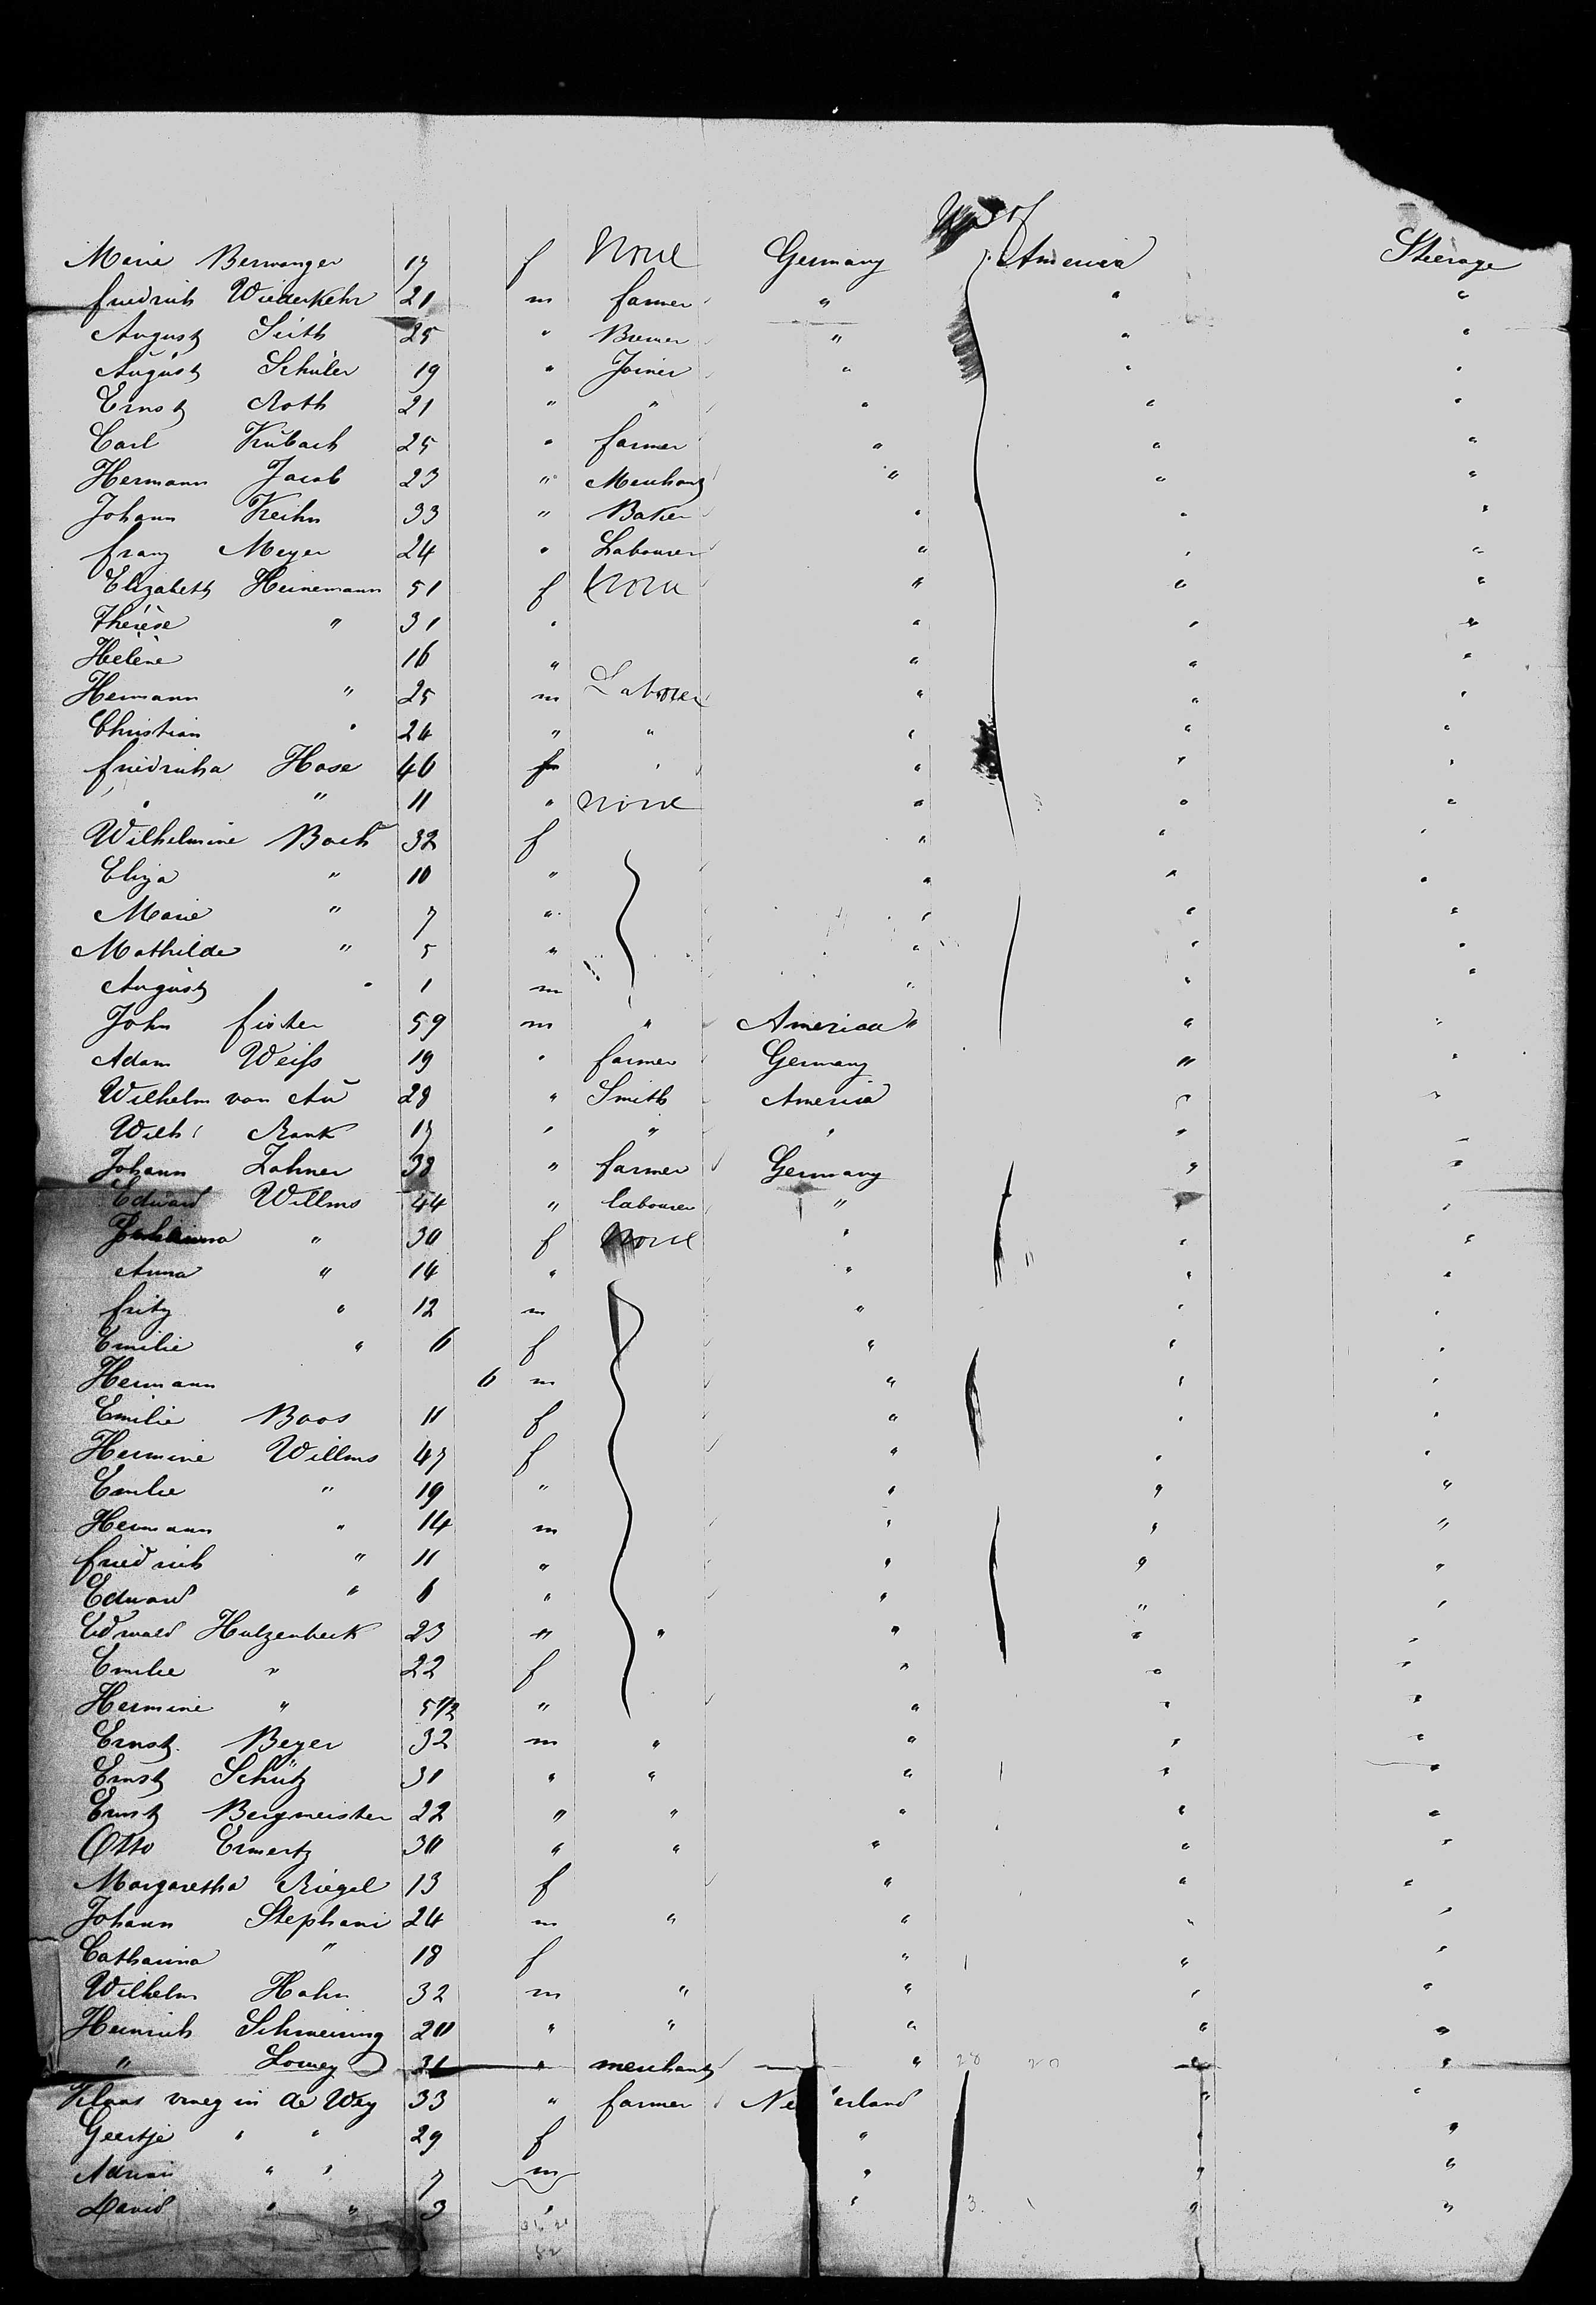 U S of
Marie Bermanger 17 f None Germany America Steerage
friedrich Wiederkehr 21 m farmer " " "
August Seith 25 " Brewer " " "
August Schuler 19 " Joiner " " "
Ernst Roth 21 " " " " "
Carl Kubach 25 " farmer " " "
Hermann Jacob 23 " Merchant " " "
Johann Keihn 33 " Baker " " "
franz Meyer 24 " Labourer " " "
Elizabeth Heinemann 51 f None " " "
Thérèse " 31 " " " "
Hélène 16 " " " "
Hermann " 25 m Laborer " " "
Christian " 24 " " " " "
friedricha Hose 46 f " " " "
" " 11 " None " " "
Wilhelmine Bach 32 f " " "
Eliza " 10 " " " "
Marie " 7 " " " "
Mathilde " 5 " " " "
August " 1 m " " "
John fister 59 m " America " " "
Adam Weiss 19 " farmer Germany " "
Wilhelm von Au 28 " Smith America " "
Wilh Rank 17 " " " " "
Johann Zahner 38 " farmer Germany " "
Edward Willms 44 " labourer " " "
Johanna " 30 f None " " "
Anna " 14 " " " "
fritz " 12 m " " "
Emilie " 6 f " " "
Hermann 6 m " " "
Emilie Boos 11 f " " "
Hermine Willms 47 f " " "
Emilie " 19 " " " "
Hermann " 14 m " " "
friedrich " 11 " " " "
Edward " 6 " " " "
Edwald Hulzenbeck 23 " " " " "
Emilie " 22 f " " "
Hermine " 5 1/2 " " " "
Ernst Beyer 32 m " " " "
Ernst Schütz 31 " " " " "
Ernst Bergmeister 22 " " " " "
Otto Ermertz 30 " " " " "
Margaretha Riegel 13 f " " "
Johann Stephani 24 m " " " "
Catharina " 18 f " " "
Wilhelm Hahn 32 m " " " "
Heinrich Schmeining 20 " " " " "
" Lowey 31 " merchant " 28 20 " "
Klaas in de Wey 33 " farmer Ne erland " "
Geertje " " 29 f " " "
Adrian " " 7 m " " "
David " " 3 " " 3 " "